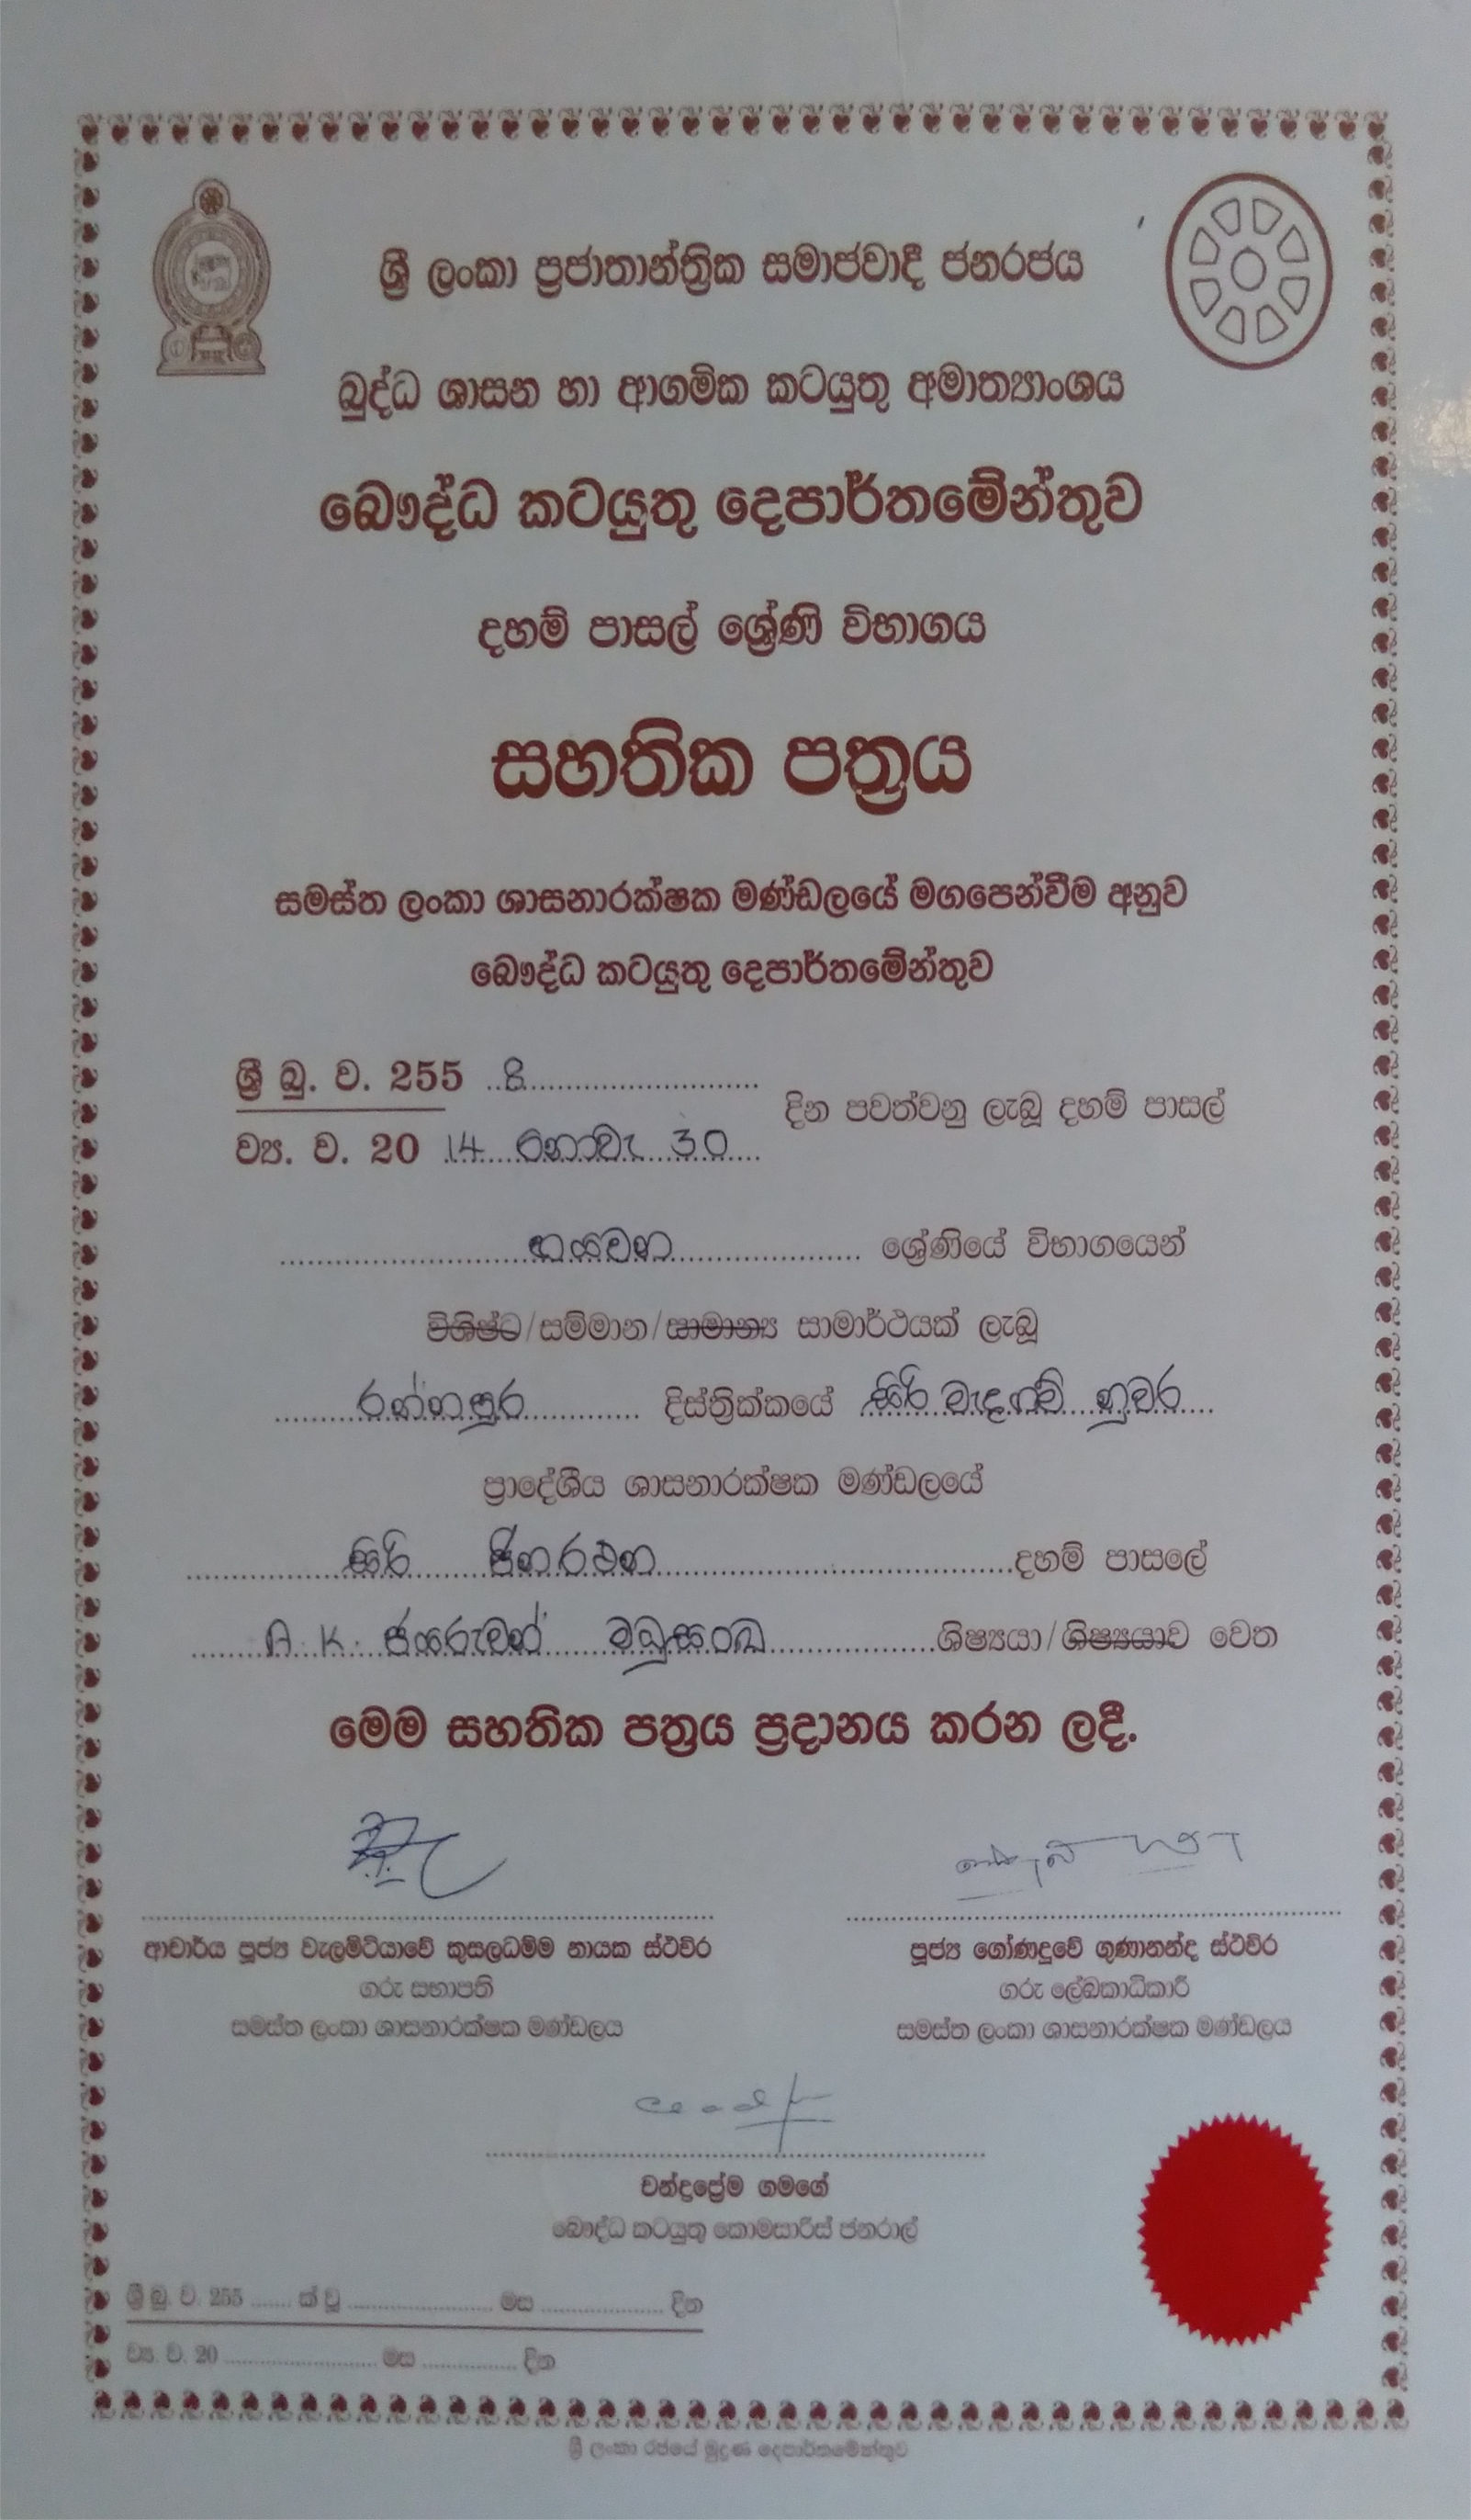 ශ්‍රී ලංකා ප්‍රජාතාන්ත්‍රික සමාජවාදී ජනරජය
බුද්ධ ශාසන හා ආගමික කටයුතු අමාත්‍යාංශය
බෞද්ධ කටයුතු දෙපාර්තමේන්තුව
දහම් පාසල් ශ්‍රේණි විභාගය
සහතික පත්‍රය
සමස්ත ලංකා ශාසනාරක්ෂක මණ්ඩලයේ මගපෙන්වීම අනුව
බෞද්ධ කටයුතු දෙපාර්තමේන්තුව
ශ්‍රී බු. ව. 255 8
ව්‍ය. ව. 20 14 නොවැ 30
දින පවත්වනු ලැබූ දහම් පාසල්
හයවන ශ්‍රේණියේ විභාගයෙන්
විශිෂ්ට/සම්මාන/සාමාන්‍ය සාමාර්ථයක් ලැබූ
රත්නපුර දිස්ත්‍රික්කයේ සිරි මැදගම් නුවර
ප්‍රාදේශීය ශාසනාරක්ෂක මණ්ඩලයේ
සිරි ජිනරතන දහම් පාසලේ
A. K. ජයරුවන් මධුසංඛ ශිෂ්‍යයා/ශිෂ්‍යයාව වෙත
මෙම සහතික පත්‍රය ප්‍රදානය කරන ලදී.
ආචාර්ය පූජ්‍ය වැලමිටියාවේ කුසලධම්ම නායක ස්ථවිර
ගරු සභාපති
සමස්ත ලංකා ශාසනාරක්ෂක මණ්ඩලය
පූජ්‍ය ගෝණදූවේ ගුණානන්ද ස්ථවිර
ගරු ලේඛකාධිකාරී
සමස්ත ලංකා ශාසනාරක්ෂක මණ්ඩලය
චන්ද්‍රප්‍රේම ගමගේ
බෞද්ධ කටයුතු කොමසාරිස් ජනරාල්
ශ්‍රී බු. ව. 255 ....... ක් වූ ........................ මස ..................... දින
ව්‍ය. ව. 20 ......................... මස ................ දින
ශ්‍රී ලංකා රජයේ මුද්‍රණ දෙපාර්තමේන්තුව